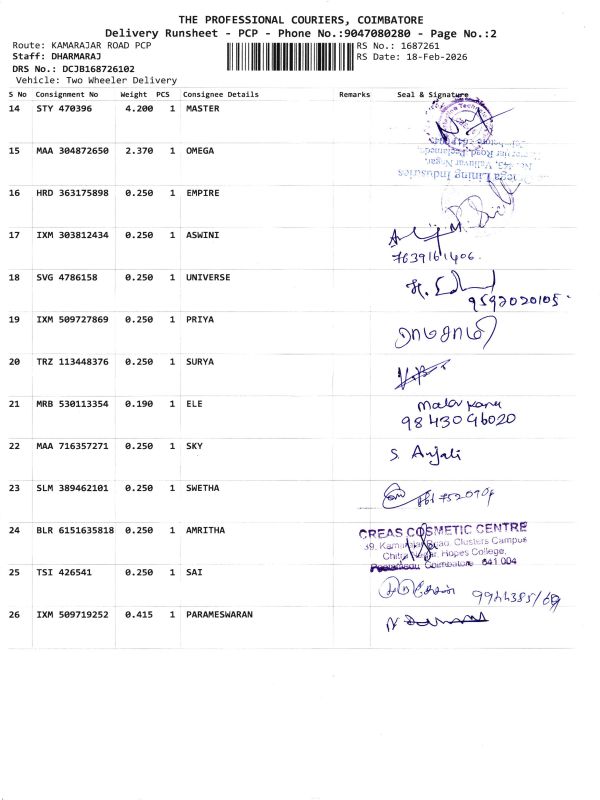 THE PROFESSIONAL COURIERS, COIMBATORE
Delivery Runsheet - PCP - Phone No.:9047080280 - Page No.:2
Route: KAMARAJAR ROAD PCP RS No.: 1687261
Staff: DHARMARAJ RS Date: 18-Feb-2026
DRS No.: DCJB168726102
Vehicle: Two Wheeler Delivery
S No Consignment No Weight PCS Consignee Details Remarks Seal & Signature
14 STY 470396 4.200 1 MASTER
15 MAA 304872650 2.370 1 OMEGA
Lining Industries
16 HRD 363175898 0.250 1 EMPIRE
17 IXM 303812434 0.250 1 ASWINI
7639161406.
18 SVG 4786158 0.250 1 UNIVERSE
9592020105.
19 IXM 509727869 0.250 1 PRIYA
20 TRZ 113448376 0.250 1 SURYA
21 MRB 530113354 0.190 1 ELE
9843096020
22 MAA 716357271 0.250 1 SKY S. Anjali
23 SLM 389462101 0.250 1 SWETHA
24 BLR 6151635818 0.250 1 AMRITHA CREAS COSMETIC CENTRE
Clusters Campus
Hopes College,
Coimbatore 641 004
25 TSI 426541 0.250 1 SAI
26 IXM 509719252 0.415 1 PARAMESWARAN